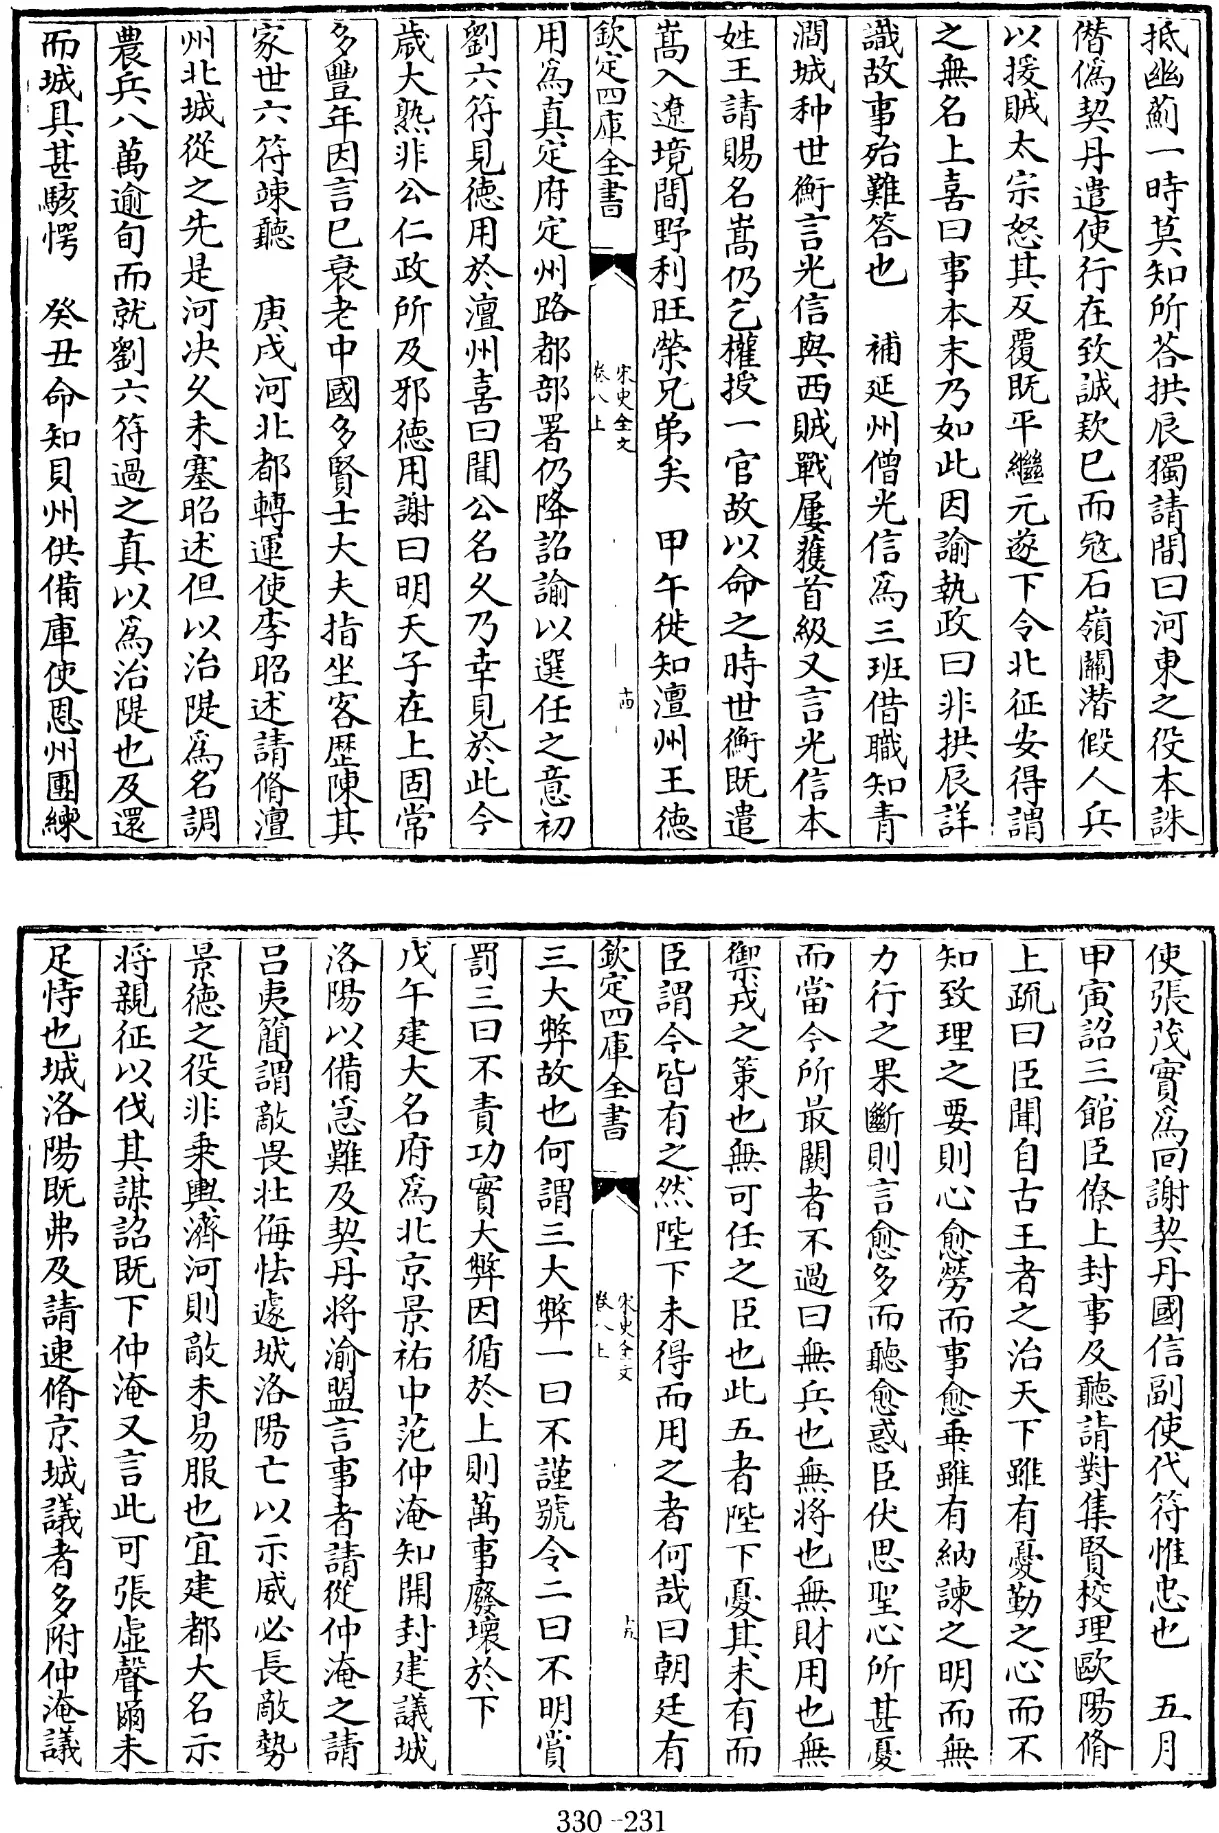 抵幽薊一時莫知所荅拱辰獨請間曰河東之役本誅
僭僞契丹遣使行在致誠欵已而宼石嶺關潜假人兵
以援賊太宗怒其反覆既平繼元遂下令北征安得謂
之無名上喜曰事本末乃如此因諭執政曰非拱辰詳
識故事殆難答也　補延州僧光信爲三班借職知青
澗城种世衡言光信與西賊戰屢獲首級又言光信本
姓王請賜名嵩仍乞權授一官故以命之時世衡既遣
嵩入遼境間野利旺榮兄弟矣　甲午徙知澶州王德
欽定四庫全書　宋史全文卷八上　十四
用爲真定府定州路都部署仍降詔諭以選任之意初
劉六符見德用於澶州喜曰聞公名乆乃幸見於此今
歲大熟非公仁政所及邪德用謝曰明天子在上固常
多豐年因言已衰老中國多賢士大夫指坐客歴陳其
家世六符竦聽　庚戌河北都轉運使李昭述請脩澶
州北城從之先是河决乆未塞昭述但以治隄爲名調
農兵八萬逾旬而就劉六符過之真以爲治隄也及還
而城具甚駭愕　癸丑命知貝州供備庫使恩州團練
使張茂實爲回謝契丹國信副使代符惟忠也　五月
甲寅詔三館臣僚上封事及聽請對集賢校理歐陽脩
上疏曰臣聞自古王者之治天下雖有憂勤之心而不
知致理之要則心愈勞而事愈乖雖有納諫之明而無
力行之果斷則言愈多而聽愈惑臣伏思聖心所甚憂
而當今所最闕者不過曰無兵也無將也無財用也無
禦戎之策也無可任之臣也此五者陛下憂其未有而
臣謂今皆有之然陛下未得而用之者何哉曰朝廷有
欽定四庫全書　宋史全文卷八上　十五
三大弊故也何謂三大弊一曰不謹號令二曰不明賞
罰三曰不責功實大弊因循於上則萬事廢壞於下
戊午建大名府爲北京景祐中范仲淹知開封建議城
洛陽以備急難及契丹將渝盟言事者請從仲淹之請
吕夷簡謂敵畏壯侮怯遽城洛陽亡以示威必長敵勢
景德之役非乘輿濟河則敵未易服也宜建都大名示
將親征以伐其謀詔既下仲淹又言此可張虛聲爾未
足恃也城洛陽既弗及請速脩京城議者多附仲淹議
330-231